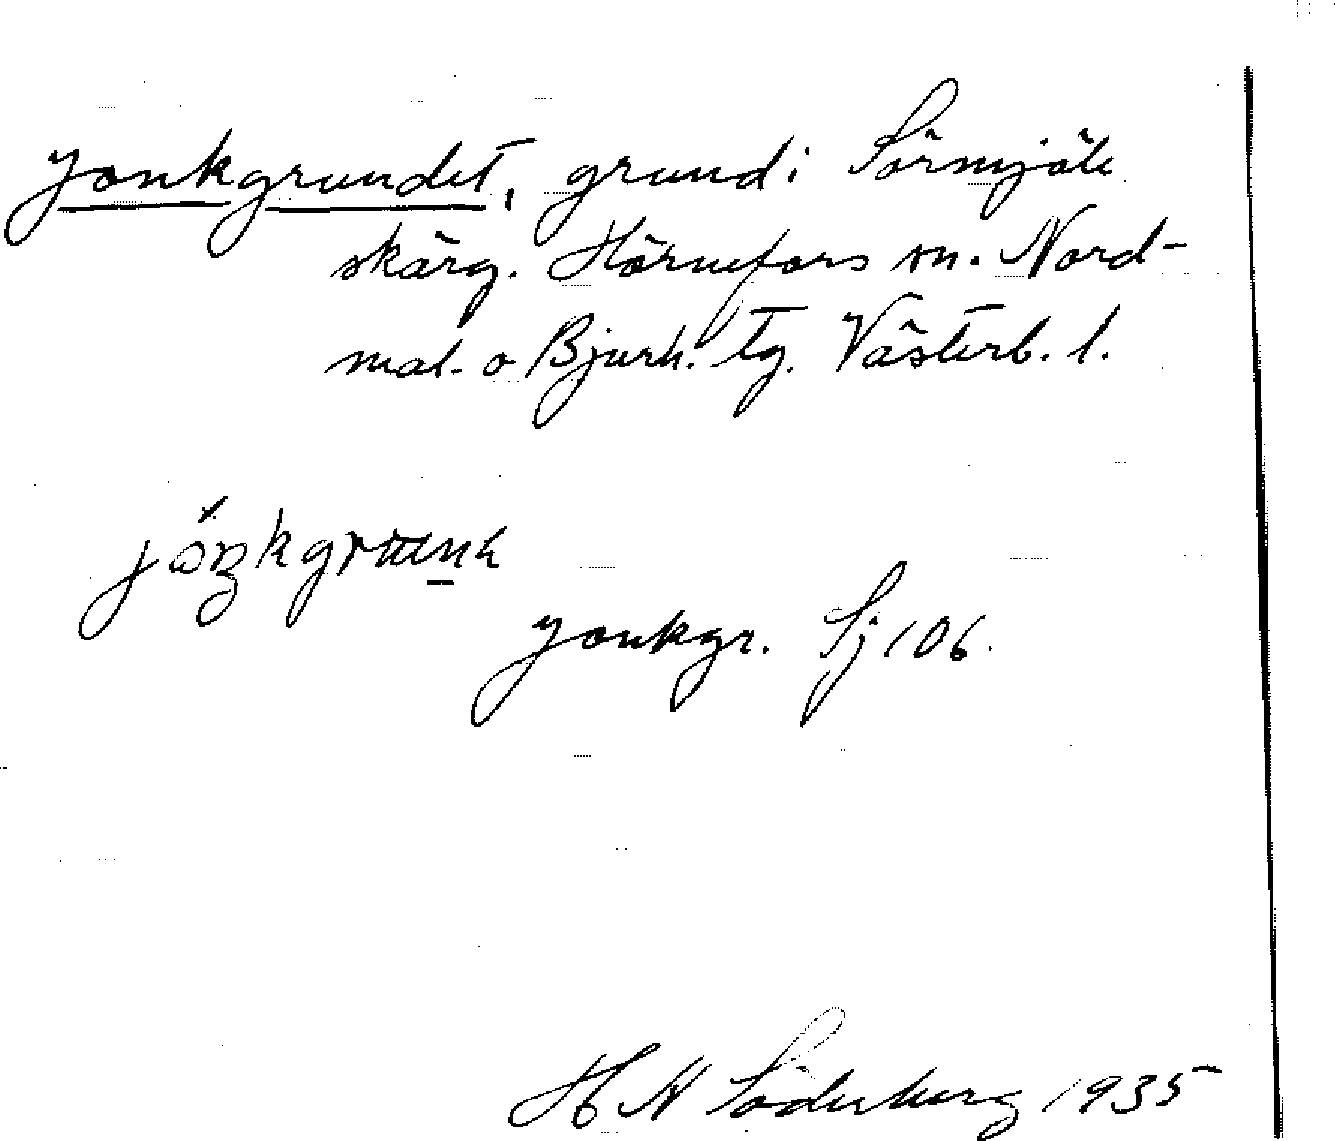 Jonkgrundet, grund i Sörmjöle
skärg. Hörnefors sn. Nord-
mal. o Bjurh. tg. Västerb. l.
Jonkgr. Sj 106.
H N Söderberg 1935